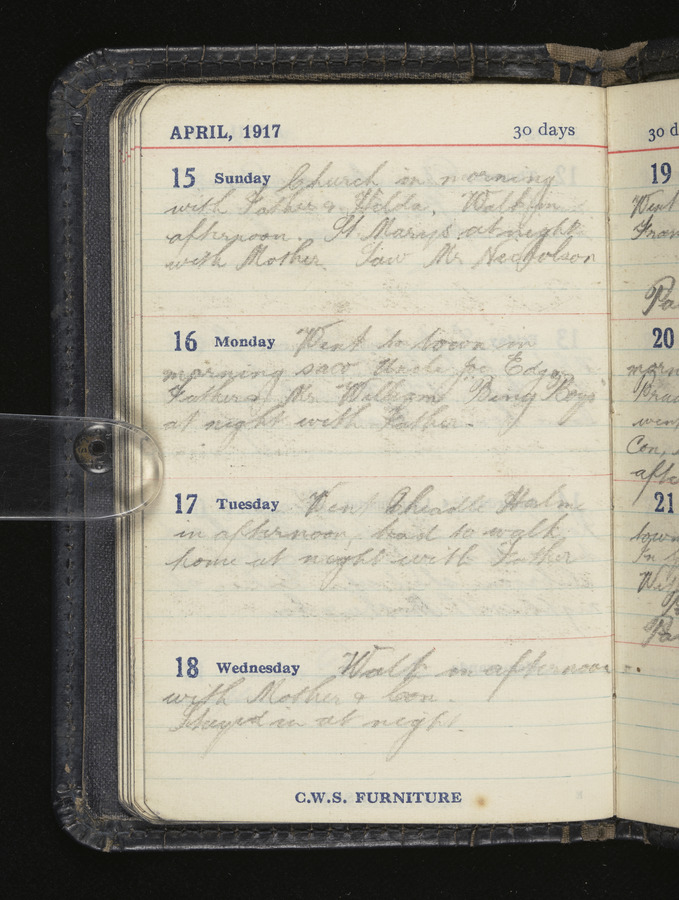 APRIL, 1917 30 days
15 Sunday Church in morning
with Father & Hilda. Walk in
afternoon. St Marys at night
with Mother. Saw Mr Nicholson
16 Monday Went to town in
morning saw Uncle Joe Edgar
Father & Mr William "Bing Boys"
at night with Father.
17 Tuesday Went Cheadle Hulme
in afternoon, had to walk
home at night with Father
18 Wednesday Walk in afternoon
with Mother & Con.
Stayed in at night.
C.W.S. FURNITURE
30 d
19
Went
Fran
Pa
20
morn
went
Con,
afte
21
town
In
Pa